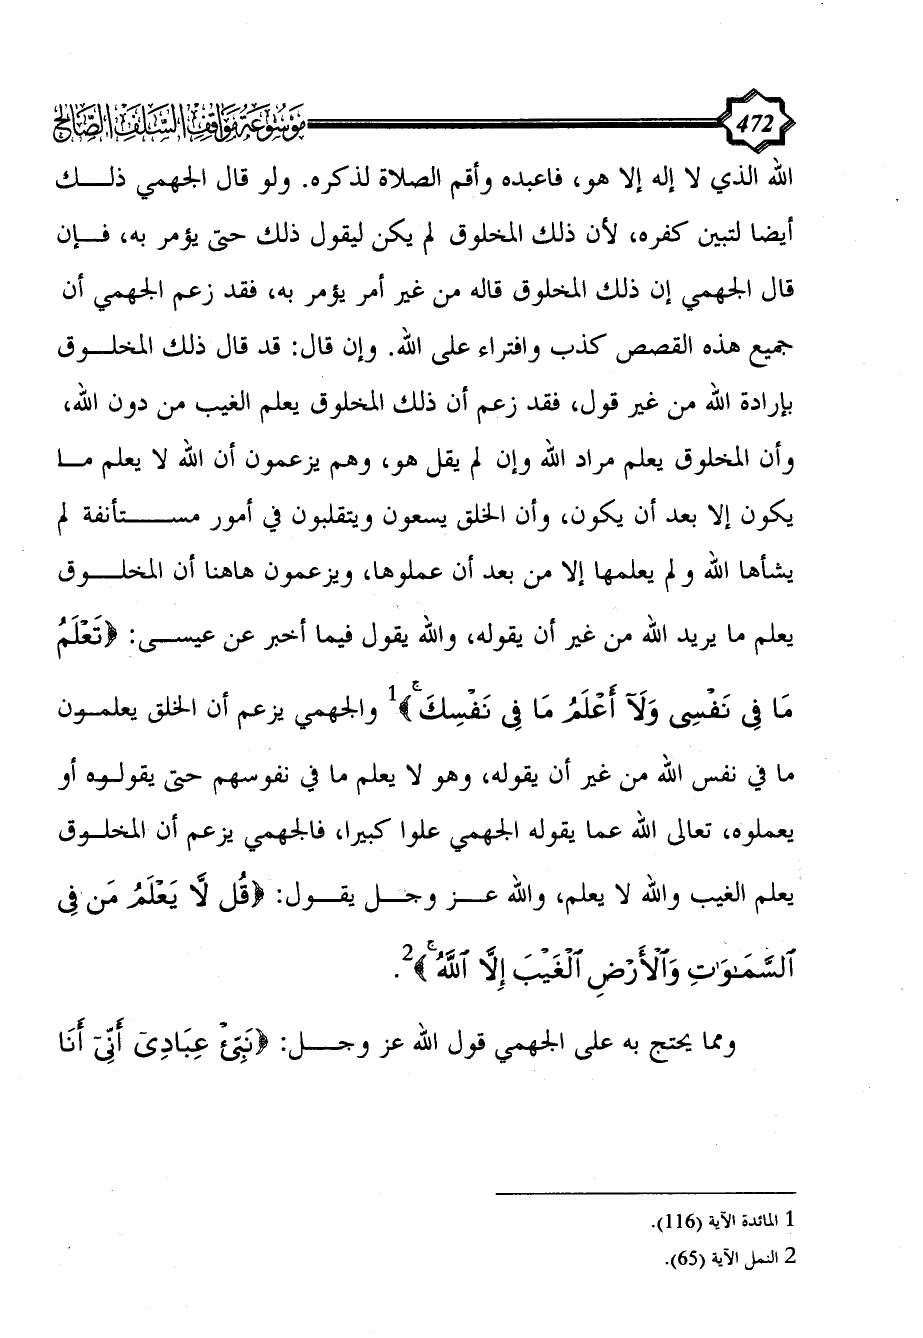 موسوعة مواقف السلف الصالح
472
الله الذي لا إله إلا هو، فاعبده وأقم الصلاة لذكره. ولو قال الجهمي ذلك
أيضا لتبين كفره، لأن ذلك المخلوق لم يكن ليقول ذلك حتى يؤمر به، فإن
قال الجهمي إن ذلك المخلوق قاله من غير أمر يؤمر به، فقد زعم الجهمي أن
جميع هذه القصص كذب وافتراء على الله. وإن قال: قد قال ذلك المخلوق
بإرادة الله من غير قول، فقد زعم أن ذلك المخلوق يعلم الغيب من دون الله،
وأن المخلوق يعلم مراد الله وإن لم يقل هو، وهم يزعمون أن الله لا يعلم ما
يكون إلا بعد أن يكون، وأن الخلق يسعون ويتقلبون في أمور مستأنفة لم
يشأها الله ولم يعلمها إلا من بعد أن عملوها، ويزعمون هاهنا أن المخلوق
يعلم ما يريد الله من غير أن يقوله، والله يقول فيما أخبر عن عيسى: ﴿تَعْلَمُ
مَا فِي نَفْسِي وَلَآ أَعْلَمُ مَا فِي نَفْسِكَ ۚ﴾1 والجهمي يزعم أن الخلق يعلمون
ما في نفس الله من غير أن يقوله، وهو لا يعلم ما في نفوسهم حتى يقولوه أو
يعملوه، تعالى الله عما يقوله الجهمي علوا كبيرا، فالجهمي يزعم أن المخلوق
يعلم الغيب والله لا يعلم، والله عز وجل يقول: ﴿قُل لَّا يَعْلَمُ مَن فِي
ٱلسَّمَٰوَٰتِ وَٱلْأَرْضِ ٱلْغَيْبَ إِلَّا ٱللَّهُ ۚ﴾2.
ومما يحتج به على الجهمي قول الله عز وجل: ﴿نَبِّئْ عِبَادِيٓ أَنِّيٓ أَنَا
1 المائدة الآية (116).
2 النمل الآية (65).